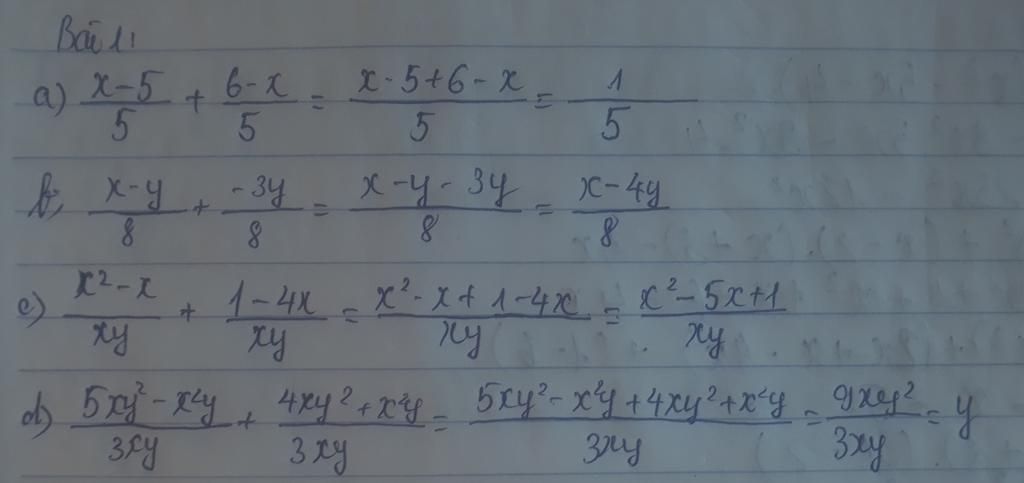 Bài 1:
a) \frac{x-5}{5} + \frac{6-x}{5} = \frac{x-5+6-x}{5} = \frac{1}{5}
b) \frac{x-y}{8} + \frac{-3y}{8} = \frac{x-y-3y}{8} = \frac{x-4y}{8}
c) \frac{x^2-x}{xy} + \frac{1-4x}{xy} = \frac{x^2-x+1-4x}{xy} = \frac{x^2-5x+1}{xy}
d) \frac{5xy^2-x^2y}{3xy} + \frac{4xy^2+x^2y}{3xy} = \frac{5xy^2-x^2y+4xy^2+x^2y}{3xy} = \frac{9xy^2}{3xy} = y